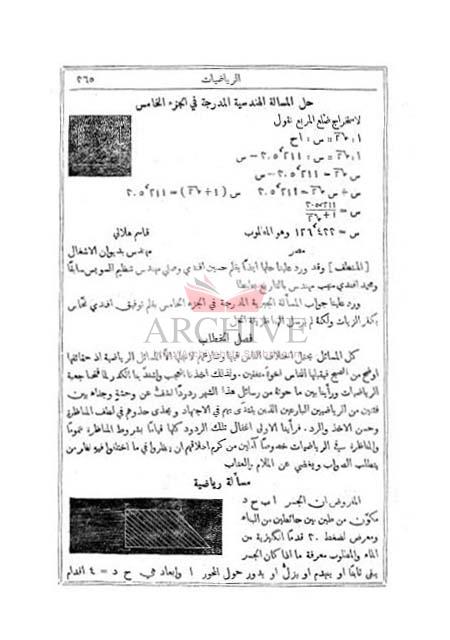 الرياضيات ٢٦٥
حل المسألة الهندسية المدرجة في الجزء الخامس
لاستخراج ضلع المربع نقول
س = ١٢٦٬٤٢٢ وهو المطلوب قاسم هلالي
مصر مهندس بديوان الاشغال
[المقتطف] وقد ورد علينا حلها ايضًا بقلم حسين افندي وصفي مهندس تنظيم السويس سابقًا
ومحمد افندي منيب مهندس بالتاريع
ورد علينا جواب المسألة الجبرية المدرجة في الجزء الخامس بقلم توفيق افندي نحاس
بكفر الزيات ولكنه لم يرسل الينا طريقة الحل
ARCHIVE
فصل الخطاب
كل المسائل يحتمل اختلاف الناس فيها الا المسائل الرياضية اذ حقائقها
اوضح من الصبح فيقبلها الناس اخوانًا متفقين. ولذلك اخذنا العجب واشتد بنا الكدر لما فتحنا جعبة
الرياضيات ورأينا بين ما حوته من رسائل هذا الشهر ردودًا تشف عن وحشة وجفاء بين
فئتين من الرياضيين البارعين الذين يقتدى بهم في الاجتهاد ويحذى حذوهم في لطف المناظرة
وحسن الاخذ والرد. فرأينا الاولى اغفال تلك الردود كلها قيامًا بشروط المناظرة عمومًا
والمناظرة في الرياضيات خصوصًا آملين من كرم اخلاقهم ان ينظروا في ما اختلفوا فيه نظر من
يتطلب الصواب ويغضي عن الملام والعتاب
مسألة رياضية
المفروض ان الجسر ا ب ح د
مكون من طين بين حائطين من البناء
ومعرض لضغط ٢٠ قدمًا انكليزية من
الماء والمطلوب معرفة ما اذا كان الجسر
يبقى ثابتًا او ينهدم او يزل او يدور حول المحور ا وابعاده هي ح د = ٤ اقدام